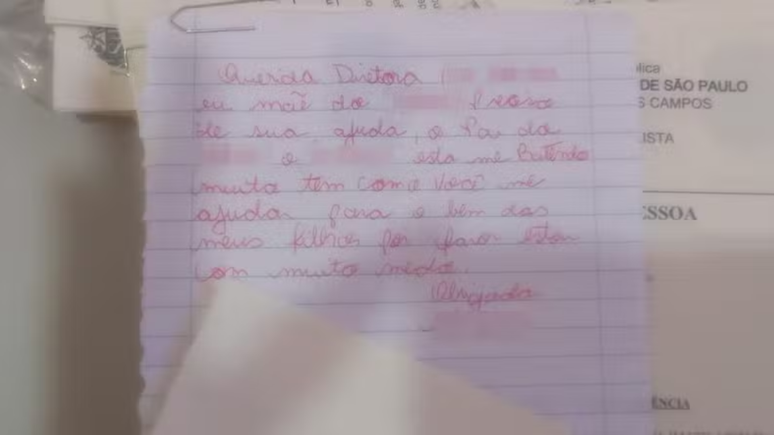 Querida Diretora
eu mãe do Preciso
de sua ajuda, o Pai da
e o esta me Batendo
muito tem como Você me
ajudar para o bem dos
meus filhos por favor estou
com muito medo.
Obrigada
lica
DE SÃO PAULO
S CAMPOS
ISTA
SSOA
ÊNCIA